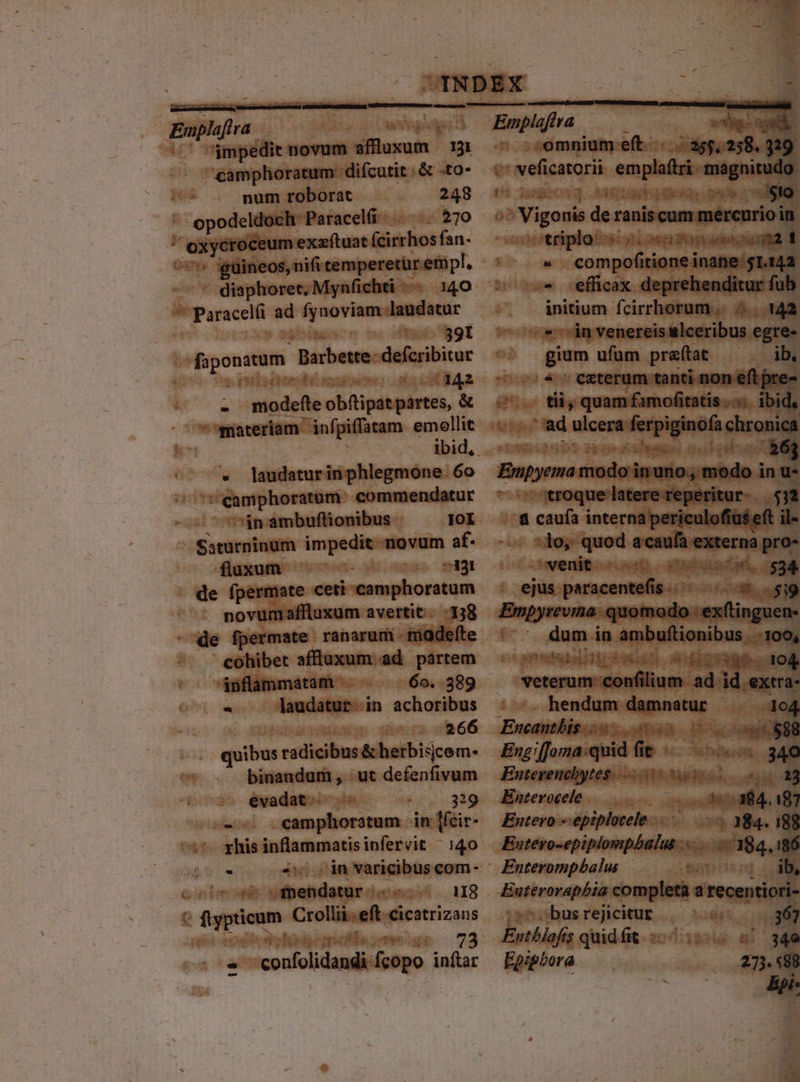 INDEX
Emplastra
impedit novum affluxum 131
camphoratum discutit & ro-
num roborat 248
opodeldoch Paracelsi 270
oxycroceum exæstuat scirrhos san-
guineos, nisi temperetur empl.
diaphoret. Mynsichti 140
Paracelsi ad synoviam laudatur
391
saponatum Barbette describitur
142
- modeste obstipat partes, &
materiam inspissatam emollit
ibid.
- laudatur in phlegmone 60
camphoratum commendatur
in ambustionibus 101
Saturninum impedit novum af-
fluxum 131
de spermate ceti camphoratum
novum affluxum avertit 138
de spermate ranarum modeste
cohibet affluxum ad partem
inflammatam 60. 389
- laudatur in achoribus
266
quibus radicibus & herbis com-
binandum, ut defensivum
evadat 329
- camphoratum in scir-
rhis inflammatis inservit 140
- - in varicibus com-
mendatur 118
stypticum Crollii est cicatrizans
73
- consolidandi scopo instar
Emplastra
omnium est 255. 258. 329
vesicatorii emplastri magnitudo
510
Vigonis de ranis cum mercurio in
triplo
- compositione inane 51. 142
- efficax deprehenditur sub
initium scirrhorum 142
- in venereis ulceribus egre-
gium usum præstat ib.
- cæterum tanti non est pre-
tii, quam famositatis ibid.
ad ulcera serpiginosa chronica
263
Empyema modo in uno, modo in u-
troque latere reperitur 532
a causa interna periculosius est il-
lo, quod a causa externa pro-
venit 534
ejus paracentesis 519
Empyreuma quomodo exstinguen-
dum in ambustionibus 100,
104
veterum consilium ad id extra-
hendum damnatur 104
Encanthis 588
Engissoma quid sit 340
Enterenchytes 23
Enterocele 184. 187
Entero-epiplocele 184. 188
Entero-epiplomphalus 184. 186
Enteromphalus ib.
Enterorraphia completa a recentiori-
bus rejicitur 367
Enthlasis quid sit 340
Epiphora 273. 588
Epi-